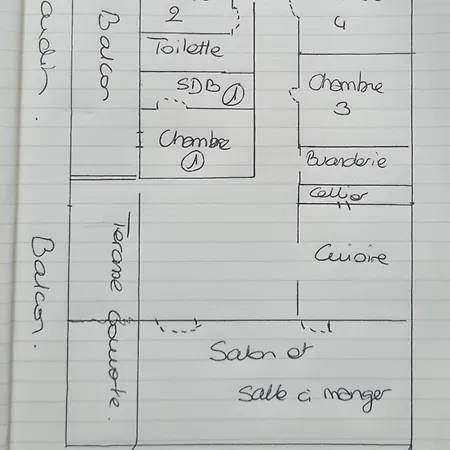 2
4
Toilette
Balcon
Jardin.
SDB 1
Chambre
3
Chambre
1
Buanderie
Cellier
Cuisine
Terasse Couverte.
Balcon.
Salon et
Salle à manger